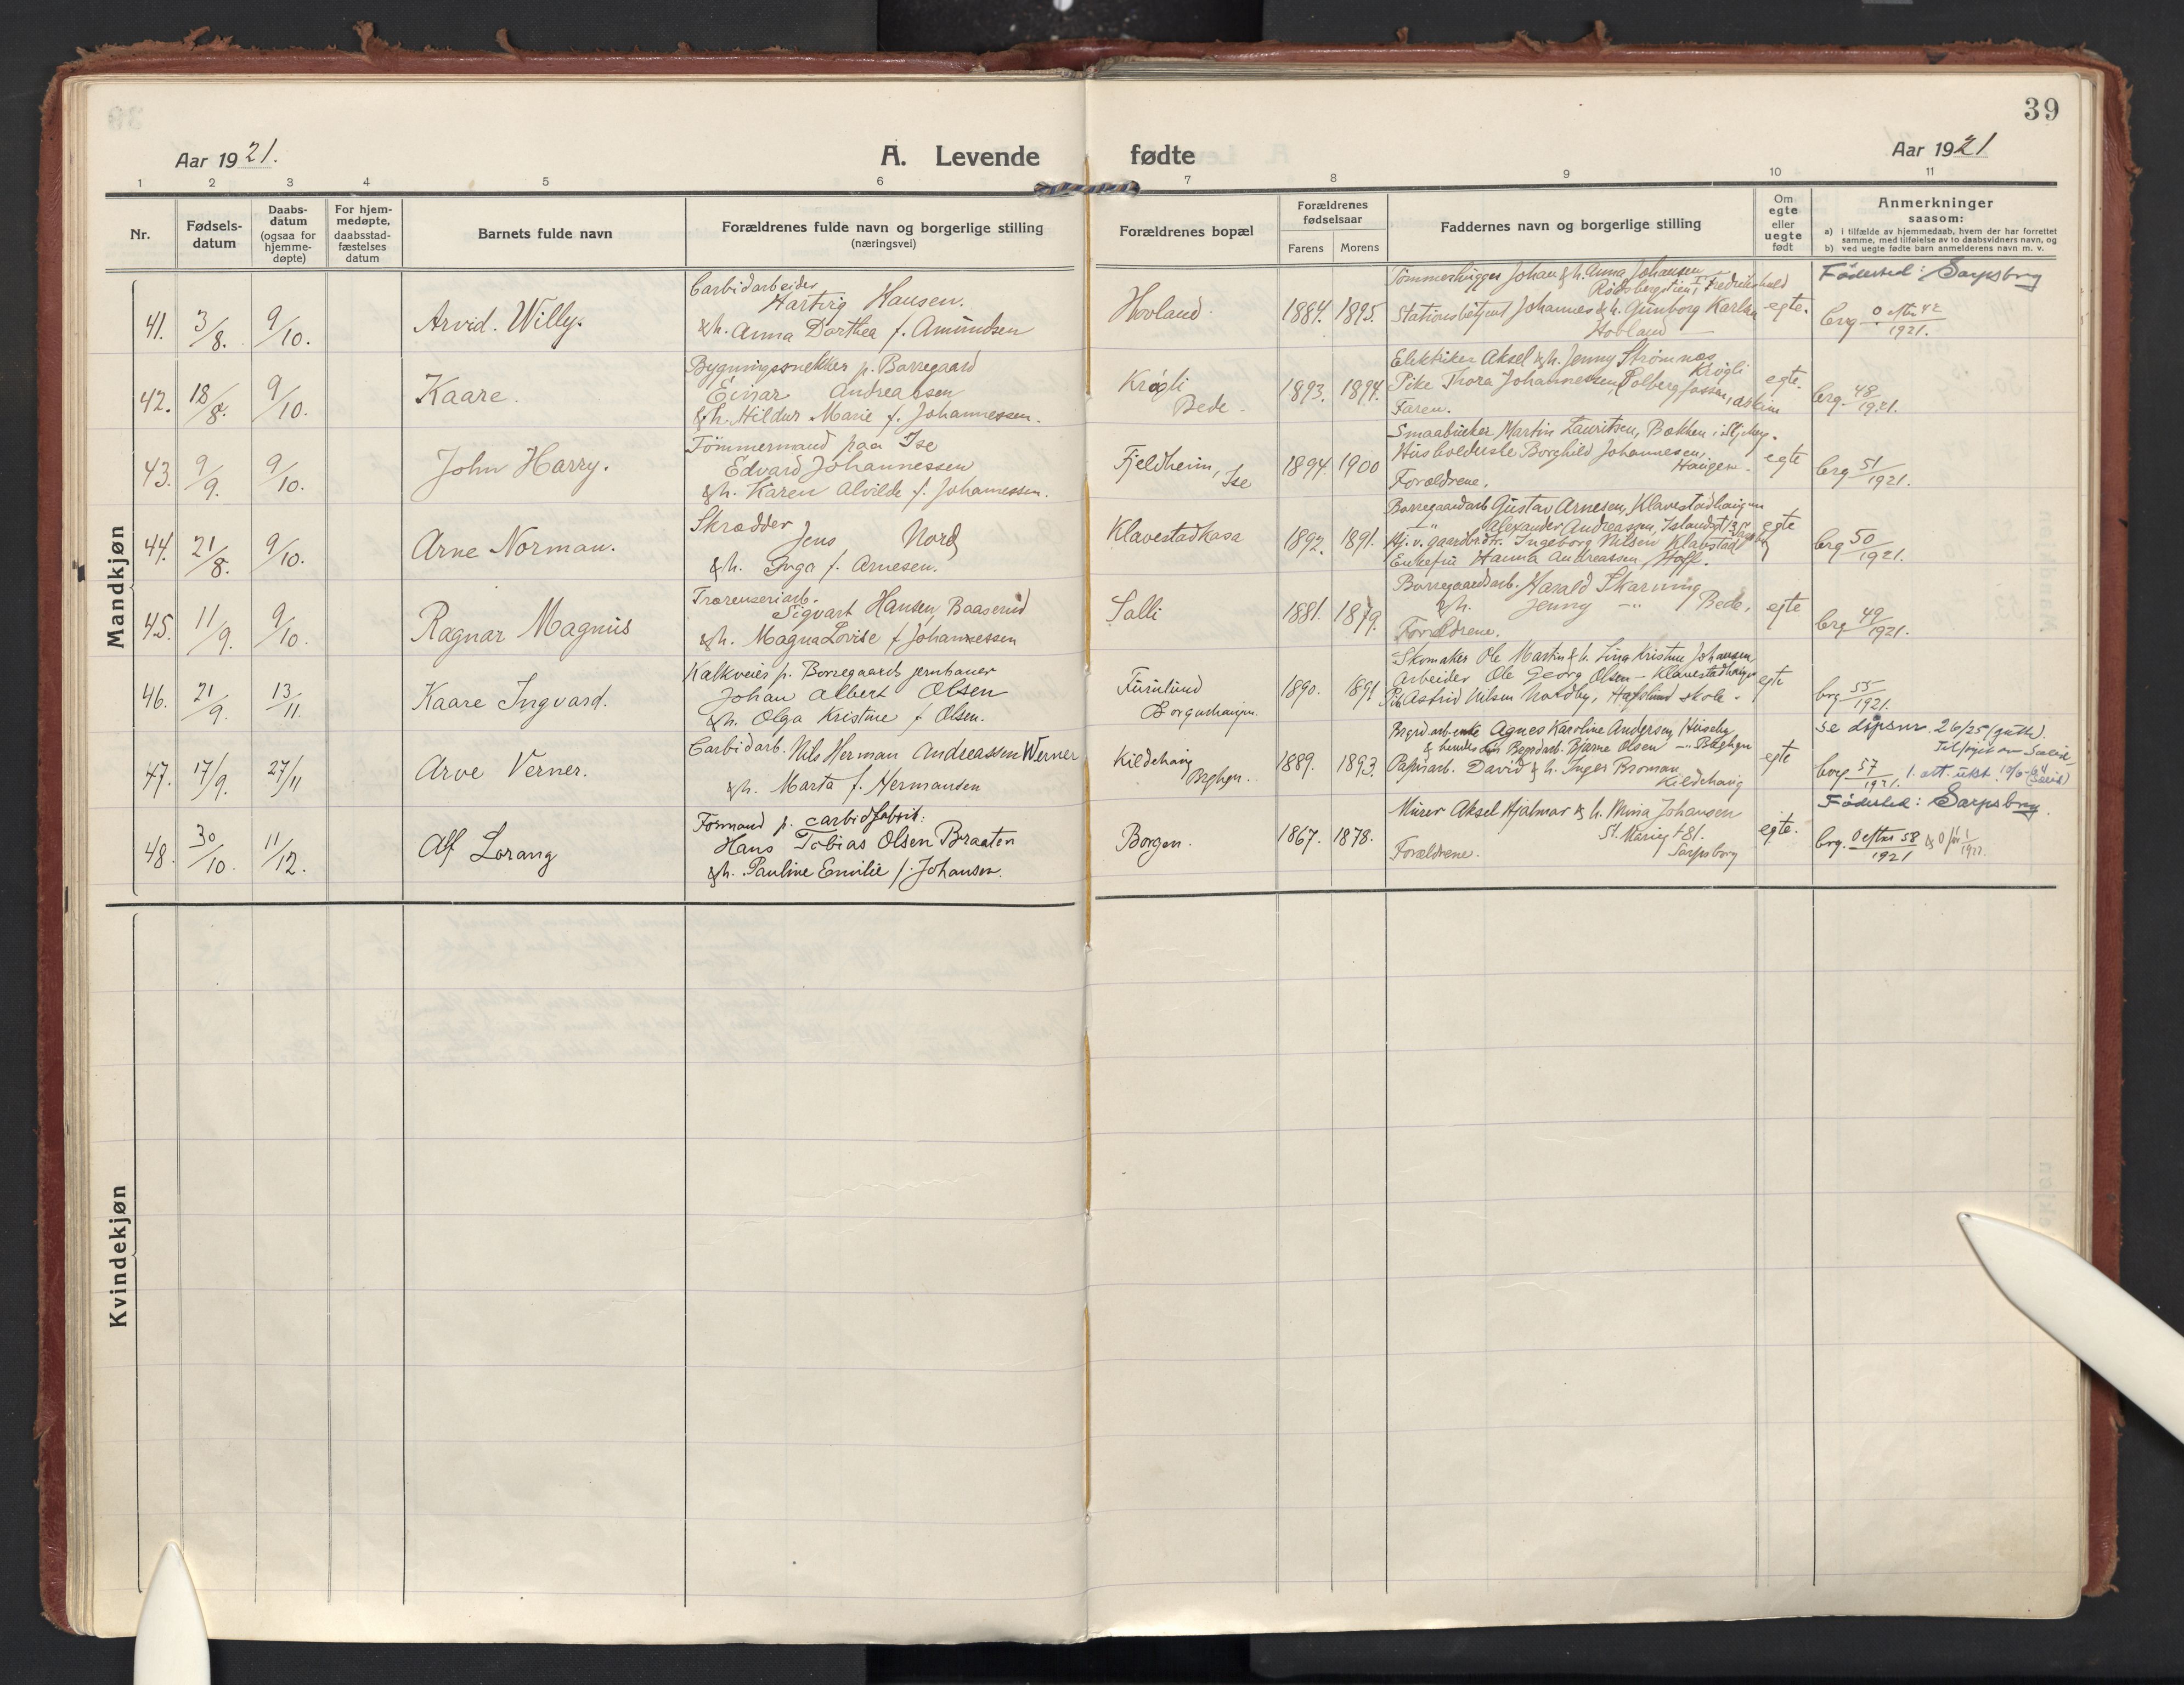 39
Aar 1921.
A. Levende fødte
Aar 1921
1 2 3 4 5 6 7 8 9 10 11
Nr.
Fødsels-
datum
Daabs-
datum
(ogsaa for
hjemme-
døpte)
For hjem-
medøpte,
daabsstad-
fæstelses
datum
Barnets fulde navn
Forældrenes fulde navn og borgerlige stilling
(næringsvei)
Forældrenes bopæl
Forældrenes
fødselsaar
Farens Morens
Faddernes navn og borgerlige stilling
Om
egte
eller
uegte
født
Anmerkninger
saasom:
a) i tilfælde av hjemmedaab, hvem der har forrettet
samme, med tilføielse av to daabsvidners navn, og
b) ved uegte fødte barn anmelderens navn m. v.
Mandkjøn
41. 3/8. 9/10. Arvid. Willy.
Carbidarbeider
Hartvig Hansen.
& h. Anna Dorthea f. Amundsen
Hovland. 1884. 1895.
Tømmerhugger Johan & h. Anna Johansen
Rødsbergstien, Fredrikshald
Stationsbetjent Johannes & h. Gunborg Karlsen
Hovland
egte.
Fødested: Sarpsborg
brg. 0 efter 42/1921.
42. 18/8. 9/10. Kaare.
Bygningssnekker p. Borregaard
Einar Andreassen
& h. Hildur Marie f. Johannessen.
Krøgli
Bede. 1893. 1894.
Elektriker Aksel & h. Jenny Strømnæs
Krøgli
Pike Thora Johannessen, Solbergfossen, Askim
Faren.
egte.
brg. 48/1921.
43. 9/9. 9/10. John Harry.
Tømmermand paa Ise
Edvard Johannessen
& h. Karen Alvilde f. Johannessen.
Fjeldheim,
Ise 1894. 1900
Smaabruker Martin Lauritsen, Bakken i Skjeberg.
Husholderske Borghild Johannesen,
Haugen.
Forældrene.
egte
brg 51/1921.
44. 21/8. 9/10. Arne Norman.
Skrædder
Jens Nord
& h. Inga f. Arnesen.
Klavestadkasa 1892. 1891.
Borregaardarb Gustav Arnesen, Klavestadhaugen
Alexander Andreassen, Islandsgt
Hj. v. gaardbrdtr. Ingeborg Nilsen Klavestad
Enkefru Hanna Andreassen, Hoff.
egte
brg 50/1921.
45. 11/9. 9/10. Ragnar Magnus
Træsenseriarb.
Sigvart Hansen, Baaserud
& h. Magna Lovise f Johannessen
Salli 1881. 1879.
Borregaardsarb. Harald Skarning
& h. Jenny -"- Bede,
Forældrene.
egte
brg 49/1921.
46. 21/9. 13/11. Kaare Ingvard.
Kalkveier p. Borregaards jernbaner
Johan Albert Olsen
& h. Olga Kristine f Olsen.
Furulund
Borgenhaugen. 1890. 1891
Skomaker Ole Martin & h. Lina Kristine Johansen,
Arbeider Ole Georg Olsen - Klavestadhaugen
Pike Astrid Nilsen Nordby, Hafslund skole.
egte
brg 55/1921.
47. 17/9. 27/11 Arve Verner.
Carbidarb. Nils Herman Andreassen Werner
& h. Marta f. Hermansen
Kildehaug
Brghgn. 1889. 1893.
Brgrd.arb. enke Agnes Karoline Andersen, Huseby
& hendes søn Brgrdarb. Bjarne Olsen -"- Brghgn
Papirarb. David & h. Inger Broman
Kildehaug
egte
se dåpsnr. 26/25 (gutter).
borg. 57/1921. 1. att. utst. 10/6-64
48. 30/10. 11/12. Alf Lorang
Formand p. carbidfabrik.
Hans Tobias Olsen Braaten
& h. Pauline Emilie f. Johansen.
Borgen. 1867. 1878.
Murer Aksel Hjalmar & h. Mina Johansen
St. Mariegt 81.
Sarpsborg
Forældrene.
egte.
Fødested: Sarpsborg.
brg. 0 efter 58/1921 & 0 før 1/1922.
Kvindekjøn